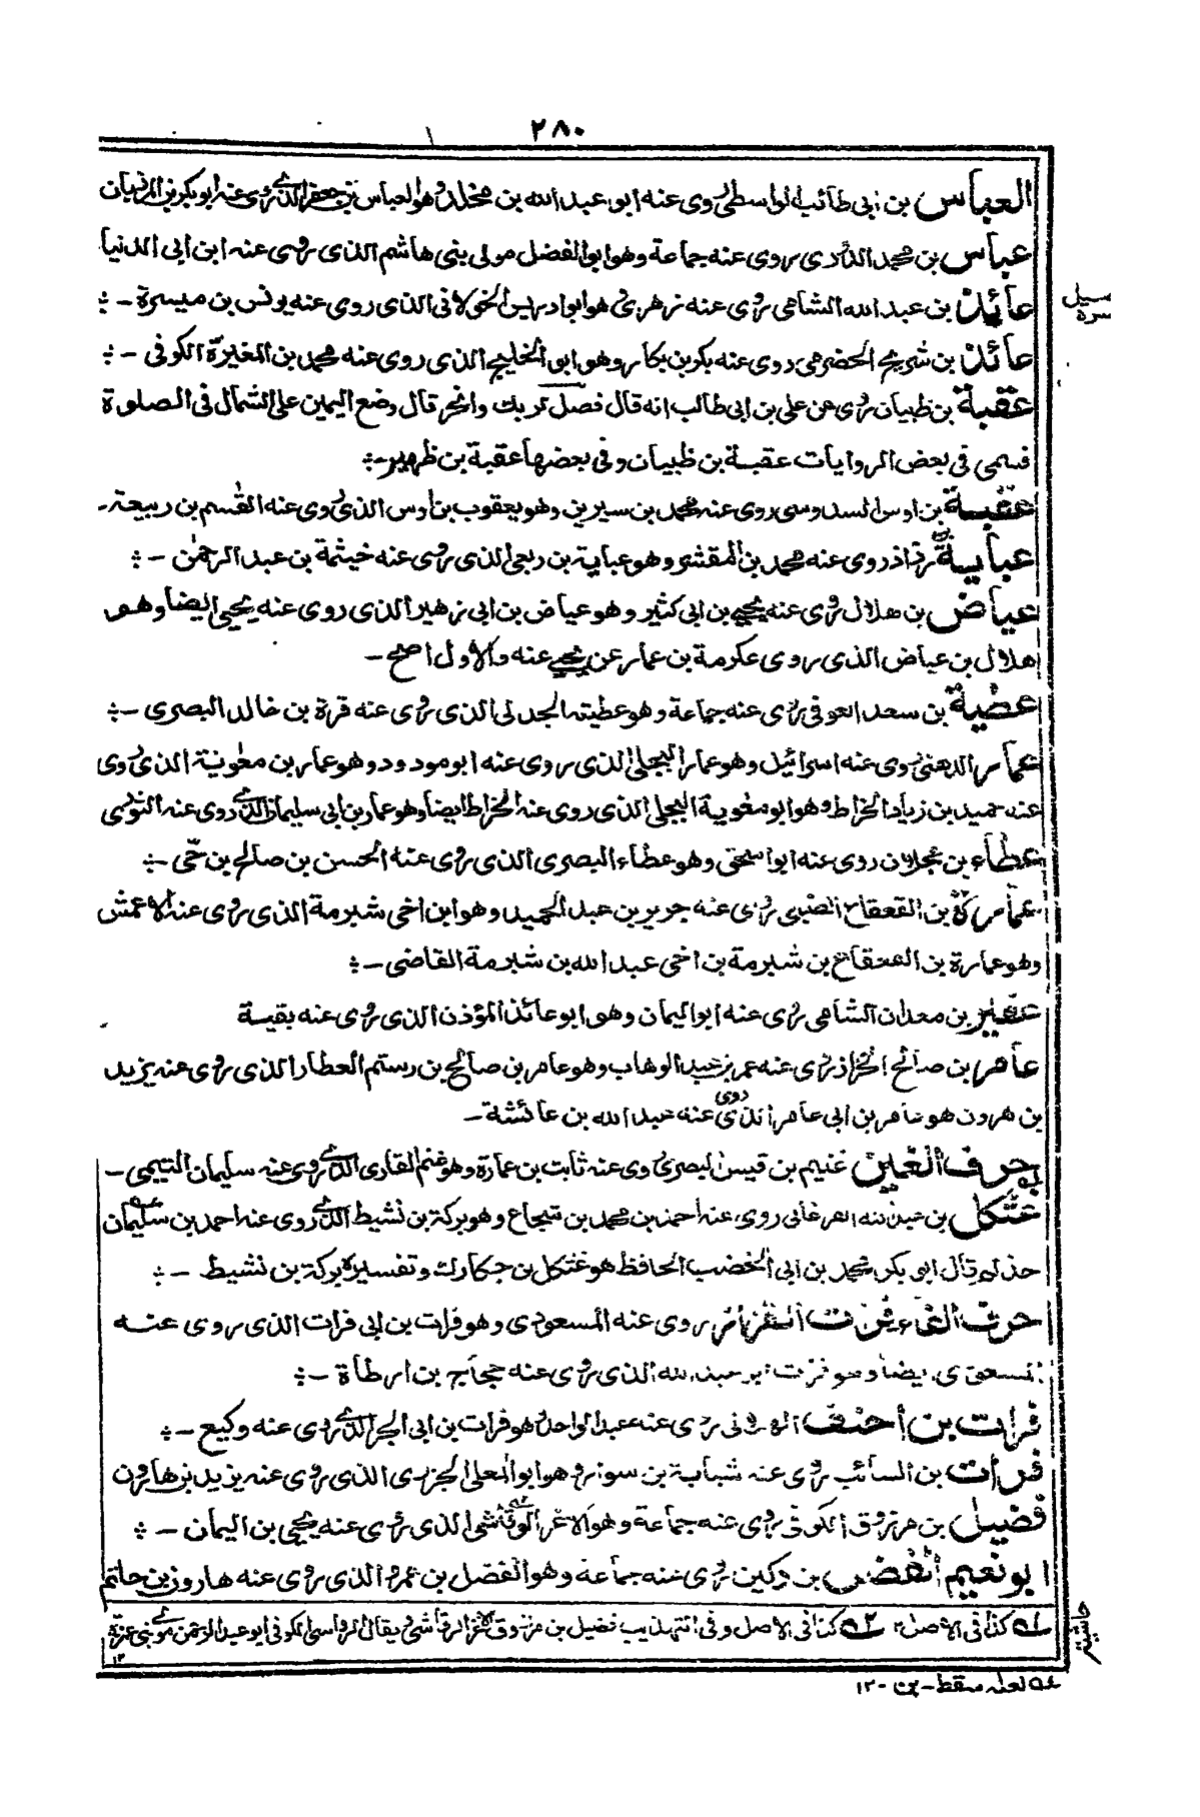 ٢٨٠
العباس بن ابى طالب الواسطى روى عنه ابو عبد الله بن مخلد وهو العباس بن جعفر الذى روى عنه ابوبكر بن المرزبان
عباس بن محمد الدورى روى عنه جماعة وهو ابو الفضل مولى بنى هاشم الذى روى عنه ابن ابى الدنيا
عائذ بن عبد الله الشامى روى عنه زهرى وهو ابو ادريس الخولانى الذى روى عنه يونس بن ميسرة -
عائذ بن شريح الحضرمى روى عنه بكر بن بكار وهو ابو الخليج الذى روى عنه محمد بن المغيرة الكوفى -
عقبة بن ظبيان روى عن على بن ابى طالب انه قال فصل لربك وانحر قال وضع اليمين على الشمال فى الصلوة
فسمى فى بعض الروايات عقبة بن ظبيان وفى بعضها عقبة بن ظهير -
عقبة بن اوس السدوسى روى عنه محمد بن سيرين وهو يعقوب بن اوس الذى روى عنه القسم بن ربيعة -
عباية روى عنه محمد بن وهو عباية بن ربعى الذى روى عنه خيثمة بن عبد الرحمن -
عياض بن هلال روى عنه يحيى بن ابى كثير وهو عياض بن ابى زهير الذى روى عنه يحيى ايضا وهو
هلال بن عياض الذى روى عكرمة بن عمار عن يحيى عنه والاول اصح -
عطية بن سعد العوفى روى عنه جماعة وهو عطية الجدلى الذى روى عنه قرة بن خالد البصرى -
عمار الدهنى روى عنه اسرائيل وهو عمار البجلى الذى روى عنه ابو مودود وهو عمار بن معوية الذى روى
عنه حميد بن زياد الخراط وهو ابو معوية البجلى الذى روى عنه الخراط ايضا وهو عمار بن ابى سليمان الذى روى عنه الثورى
عطاء بن عجلان روى عنه ابو اسحق وهو عطاء البصرى الذى روى عنه الحسن بن صالح بن حى -
عمارة بن القعقاع الضبى روى عنه جرير بن عبد الحميد وهو ابن اخى شبرمة الذى روى عنه الاعمش
وهو عمارة بن القعقاع بن شبرمة بن اخى عبد الله بن شبرمة القاضى -
عفير بن معدان الشامى روى عنه ابو اليمان وهو ابو عائذ المؤذن الذى روى عنه بقية
عامر بن صالح الخزاز روى عنه عمر بن عبد الوهاب وهو عامر بن صالح بن رستم العطار الذى روى عنه يزيد
بن هرون هو عامر بن ابى عامر الذى روى عنه عبد الله بن عائشة -
حرف الغين غنيم بن قيس البصرى روى عنه ثابت بن عمارة وهو غنم القارى الذى روى عنه سليمان التيمى -
غتكل بن الله الفرغانى روى عنه احمد بن محمد بن شجاع وهو بركة بن نشيط الذى روى عنه احمد بن سليمان
حذلم قال ابو بكر محمد بن ابى الخضب الحافظ هو غتكل بن حكارك وتفسيره بركة بن نشيط -
حرف الفاء فرات القزاز روى عنه المسعودى وهو فرات بن ابى فرات الذى روى عنه
المسعودى ايضا وهو فرات بن عبد الله الذى روى عنه حجاج بن ارطاة -
فرات بن احنف روى عنه عبد الواحد وهو فرات بن ابى الذى روى عنه وكيع -
فرات بن السائب روى عنه شبابة بن سوار وهو ابو المعلى الجزرى الذى روى عنه يزيد بن هارون
فضيل بن مرزوق الكوفى روى عنه جماعة وهو الاغر الرقاشى الذى روى عنه يحيى بن اليمان -
ابو نعيم الفضل بن دكين روى عنه جماعة وهو الفضل بن عمرو الذى روى عنه هارون بن حاتم
له كذا فى الاصل ١٢ ٢ه كذا فى الاصل وفى التهذيب فضيل بن مرزوق الاغر الرقاشى ويقال الرواسى الكوفى ابو عبد الرحمن مولى بنى عنزة
١٢
لعله سقط - بن - ١٢